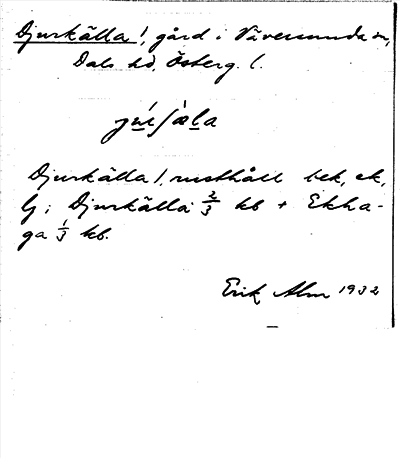 Djurkälla /, gård i Väversunda sn,
Dals hd, Österg. l.
Djurkälla /, rusthåll bek, ek,
G; Djurkälla 2/3 kb + Ekha-
ga 1/3 kb.
Erik Alm 1932